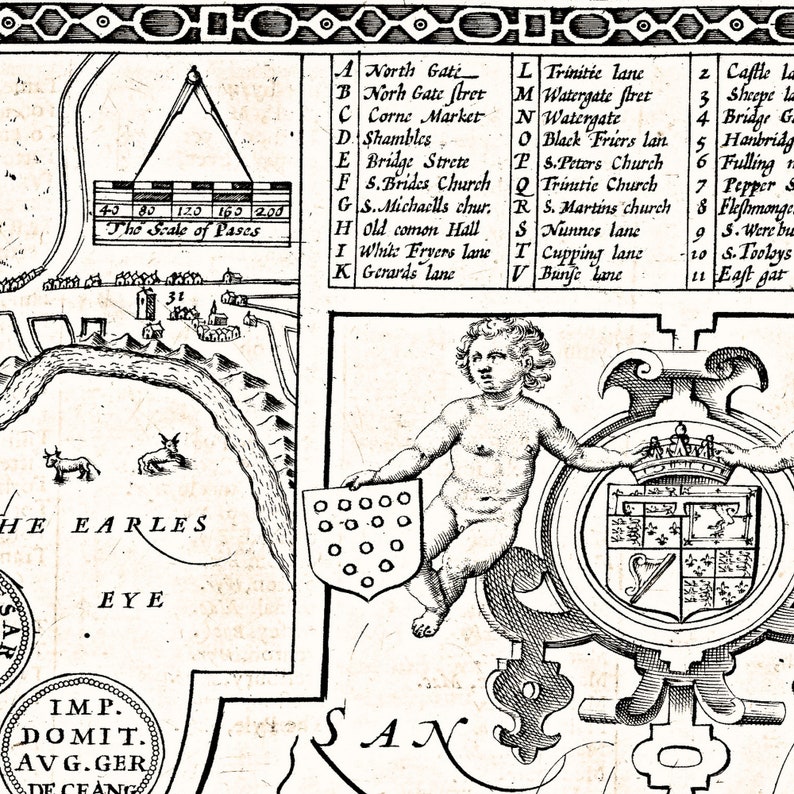 A North Gate
B Norh Gate stret
C Corne Market
D Shambles
E Bridge Strete
F S. Brides Church
G S. Michaells chur.
H Old comon Hall
I White Fryers lane
K Gerards lane
L Trinitie lane
M Watergate stret
N Watergate
O Black Friers lan
P S. Peters Church
Q Trinitie Church
R S. Martins church
S Nunnes lane
T Cupping lane
V Bunse lane
2 Castle la
3 Sheepe l
4 Bridge G
5 Hanbridg
6 Fulling
7 Pepper S
8 Fleshmonge
9 S. Werebu
10 S. Tooleys
11 East gat
40 80 120 160 200
The Scale of Pases
31
HE EARLES
EYE
SAR
IMP.
DOMIT.
AVG. GER
DE CEANG
SAN